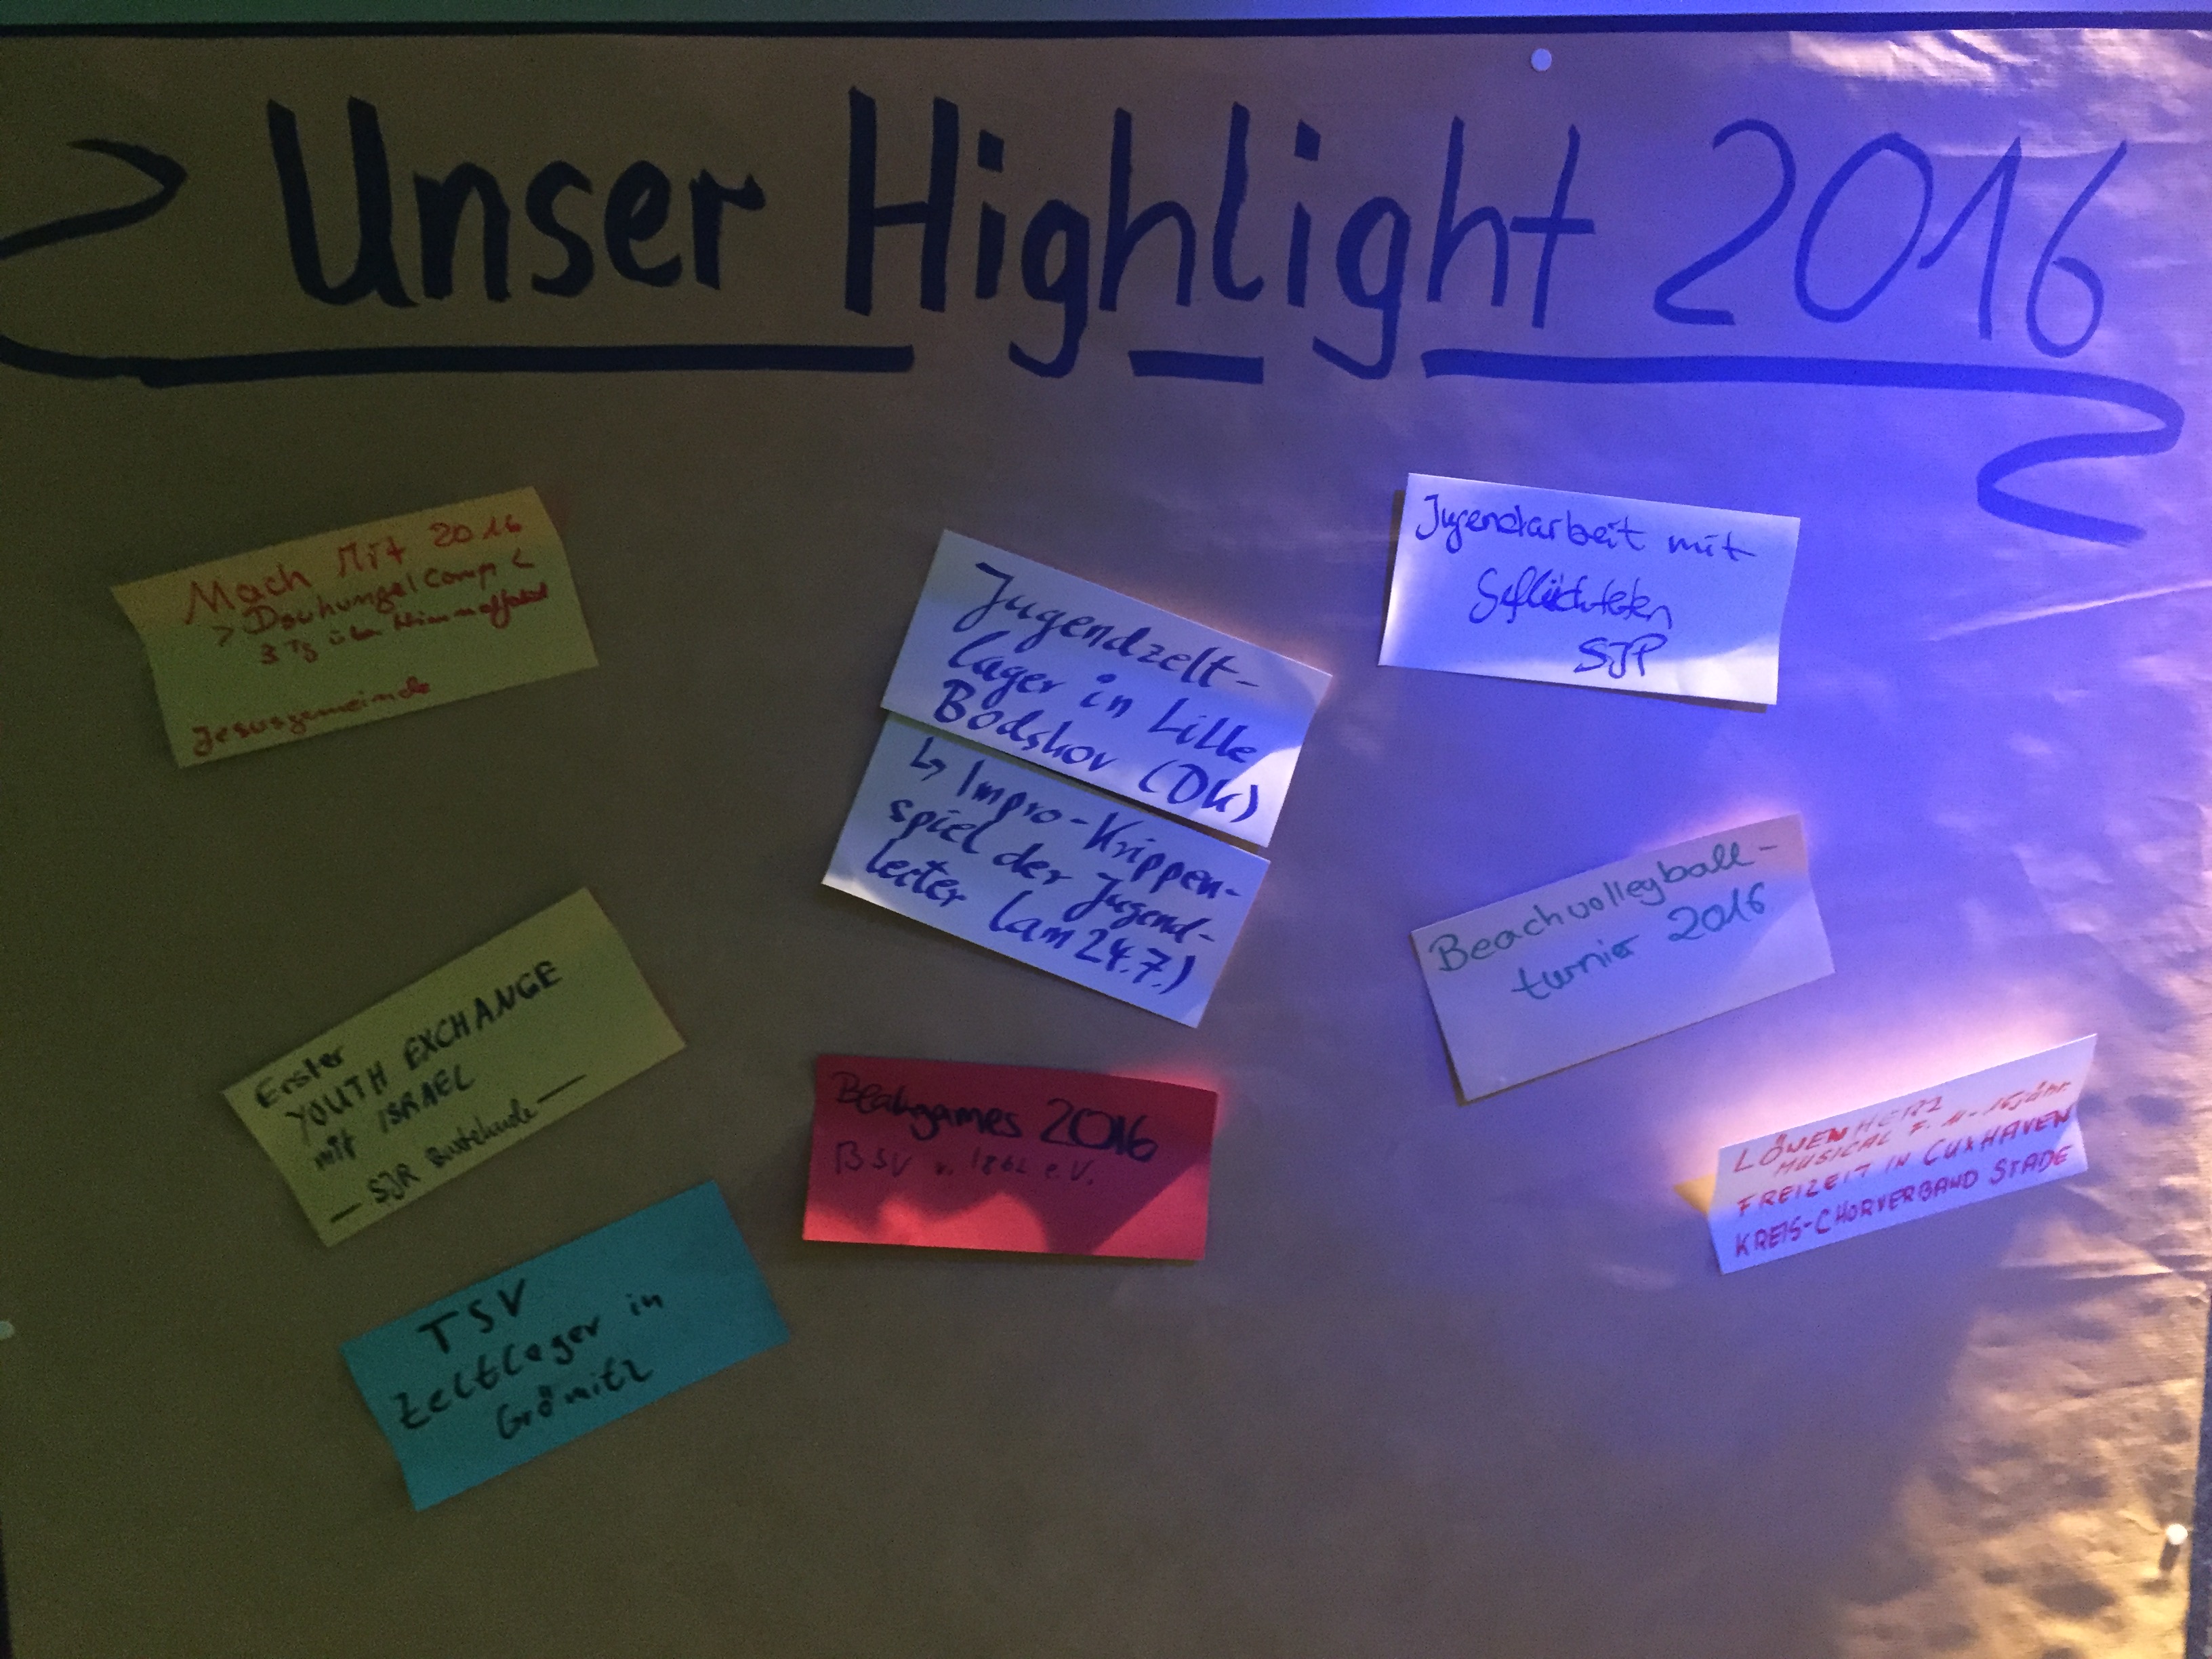 > Unser Highlight 2016
Mach Mit 2016
> Dschungel Camp <
3 Tg über Himmelfahrt
Jesusgemeinde
Jugendzelt-
lager in Lille
Bodskov (DK)
↳ Impro-Krippen-
spiel der Jugend-
leiter (am 24.7.)
Jugendarbeit mit
Geflüchteten
SJP
Beachvolleyball-
turnier 2016
Erster
YOUTH EXCHANGE
mit ISRAEL
— SJR Buxtehude —
2016
BSV v. 1862 e.V.
LÖWENHERZ
MUSICAL F. 11-16jähr.
FREIZEIT IN CUXHAVEN
KREIS-CHORVERBAND STADE
TSV
Zeltlager in
Grömitz